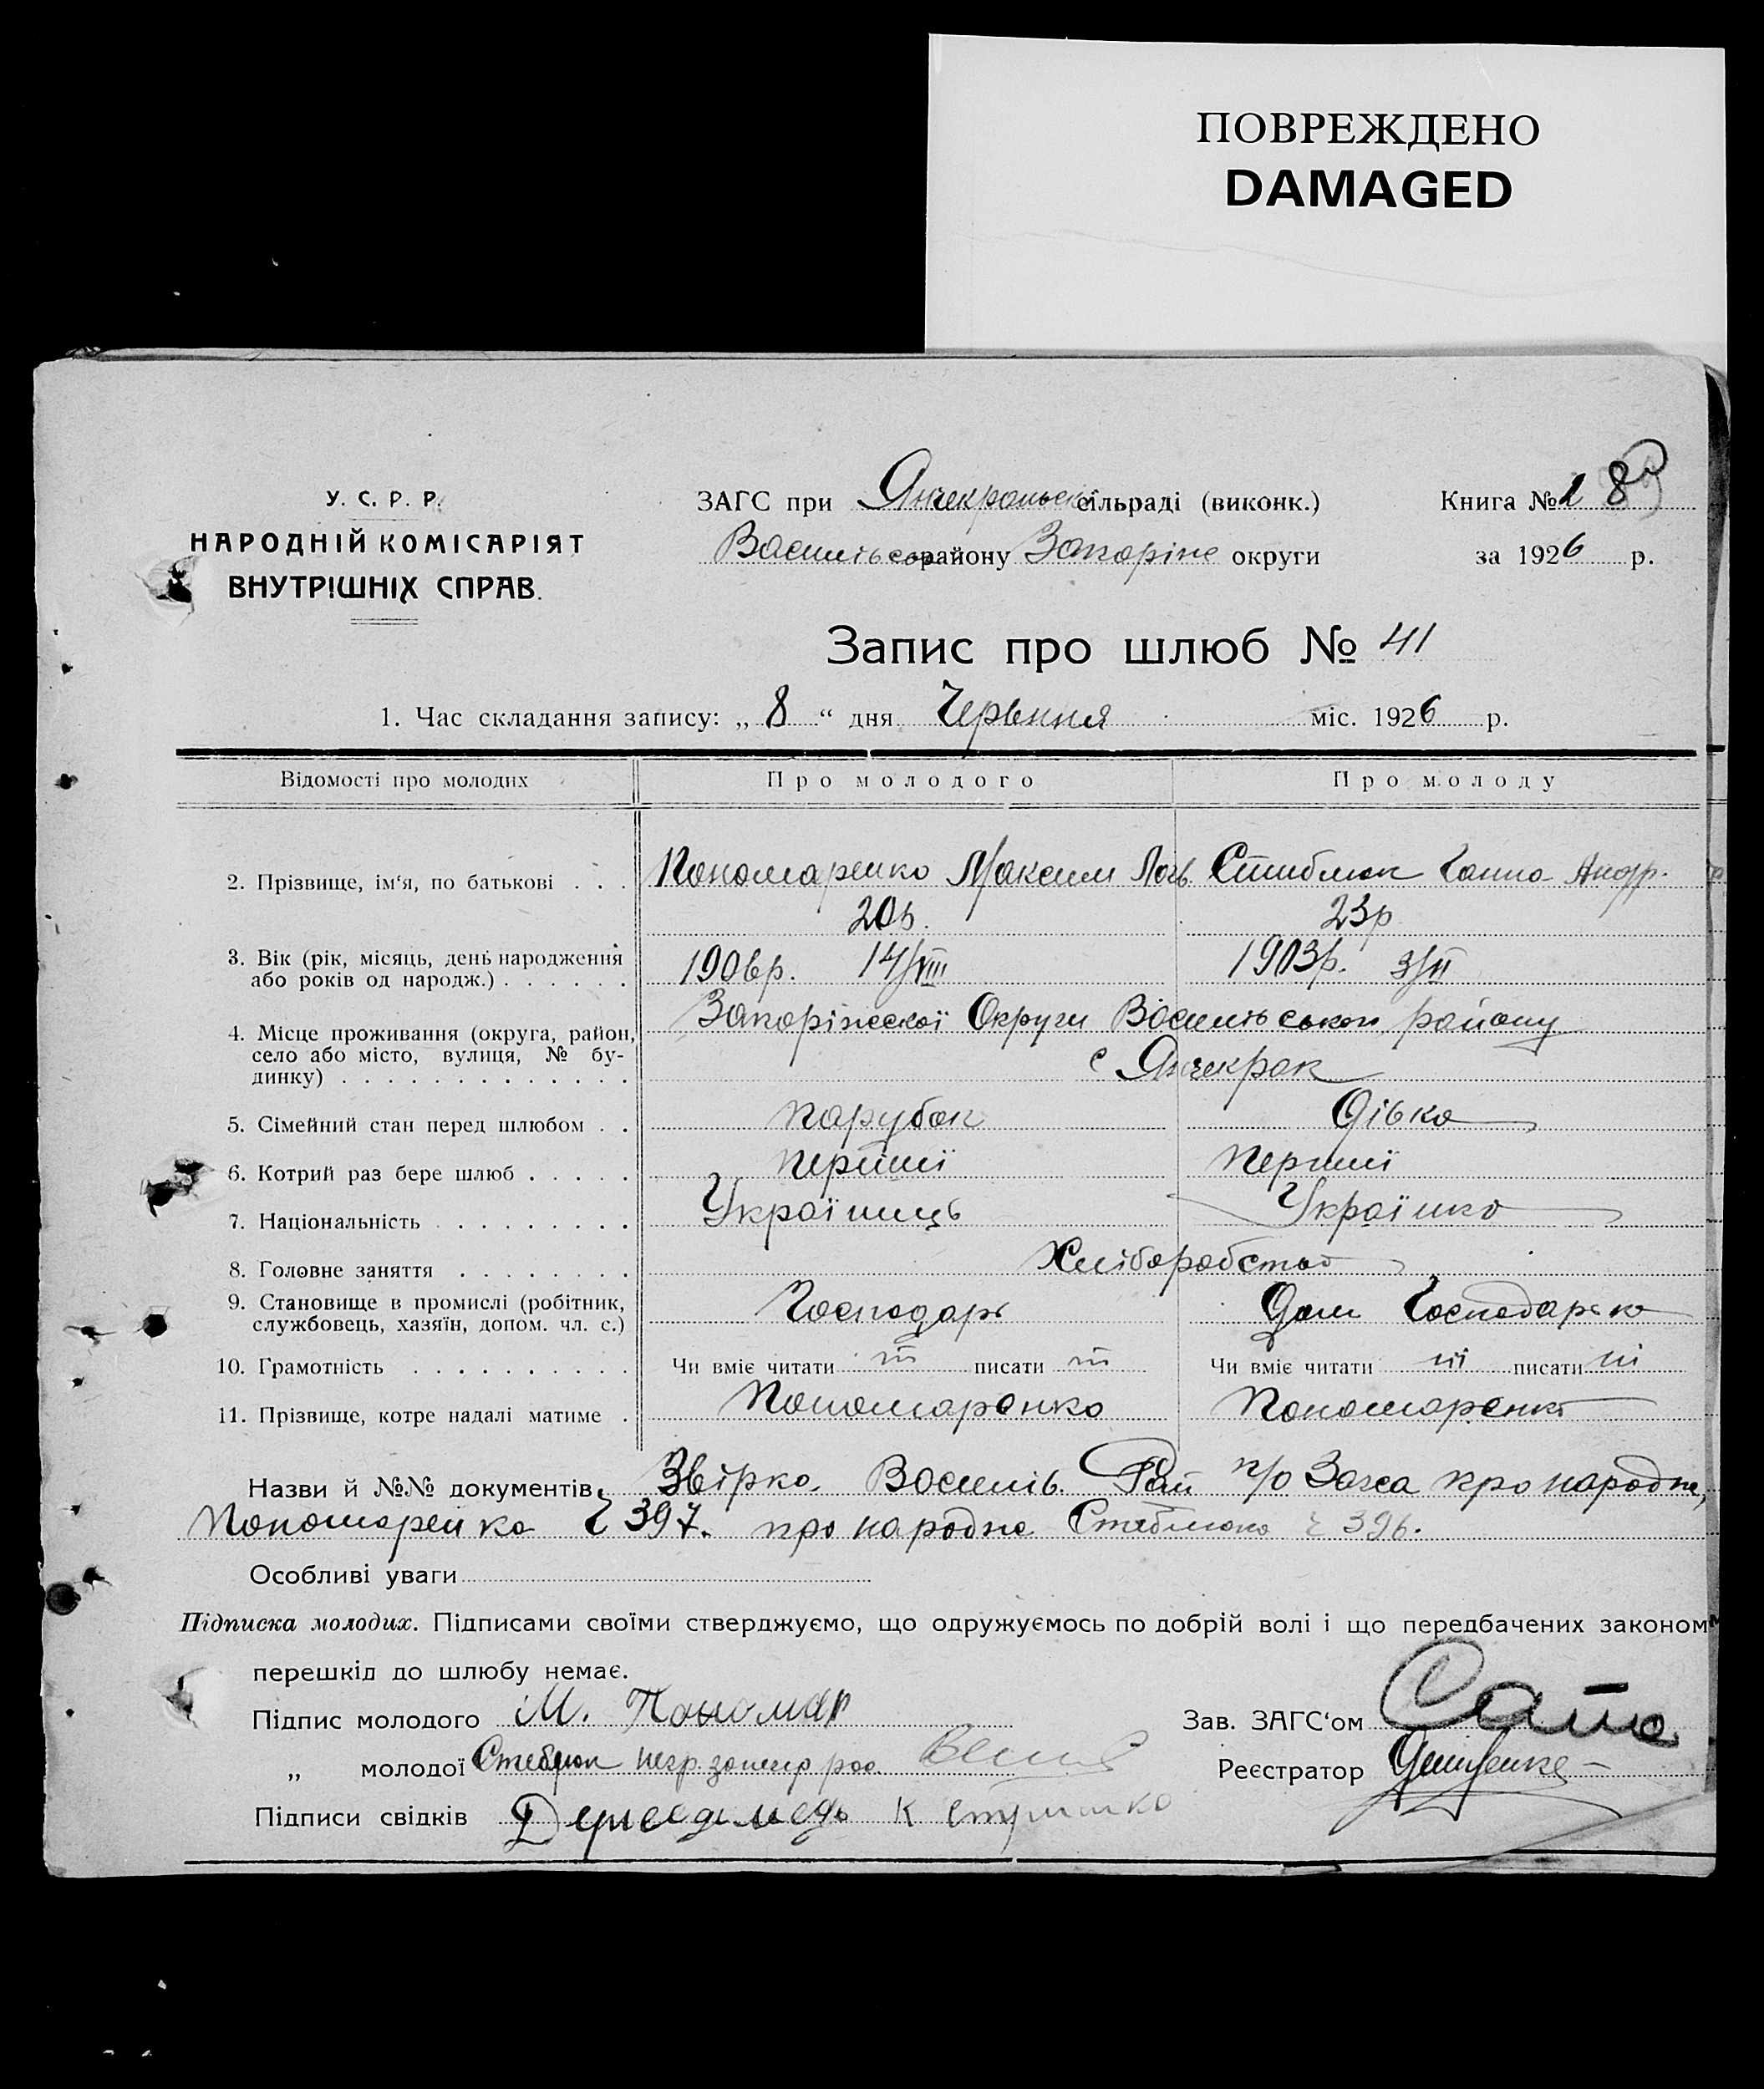 ПОВРЕЖДЕНО
DAMAGED
У. С. Р. Р.
НАРОДНІЙ КОМІСАРІЯТ
ВНУТРІШНІХ СПРАВ.
ЗАГС при Янчекрацьск сільраді (виконк.)
Василівськ району Запоріж округи
Книга № 1 8
за 1926 р.
Запис про шлюб № 41
1. Час складання запису: „ 8 “ дня Червння міс. 1926 р.
Відомості про молодих Про молодого Про молоду
2. Прізвище, ім‘я, по батькові . . . Пономаренко Максим Логв. Стиблюк Ганна Андр.
20р. 23р
3. Вік (рік, місяць, день народження
або років од народж.) . . . . . . 1906р. 14/VIII 1903р. 3/II
4. Місце проживання (округа, район,
село або місто, вулиця, № бу-
динку) . . . . . . . . . . . . .
Запоріжської Округи Василівського району
с Янчекрак
5. Сімейний стан перед шлюбом . . парубок дівка
6. Котрий раз бере шлюб . . . . . перший перший
7. Національність . . . . . . . . . Українець Українка
8. Головне заняття . . . . . . . . Хліборобство
9. Становище в промислі (робітник,
службовець, хазяїн, допом. чл. с.) Господарь Дом Господарка
10. Грамотність . . . . . . . . . . Чи вміє читати ні писати ні Чи вміє читати ні писати ні
11. Прізвище, котре надалі матиме . Пономаренко Пономаренко
Назви й №№ документів: Звірка Василів. Рай п/о Загса про народж,
Пономаренка Ч 397. про народж Стеблюка ч 396.
Особливі уваги
Підписка молодих. Підписами своїми стверджуємо, що одружуємось по добрій волі і що передбачених законом
перешкід до шлюбу немає.
Підпис молодого М. Пономар
Зав. ЗАГС‘ом
„ молодої Стеблюк негр.
Реєстратор
Підписи свідків К